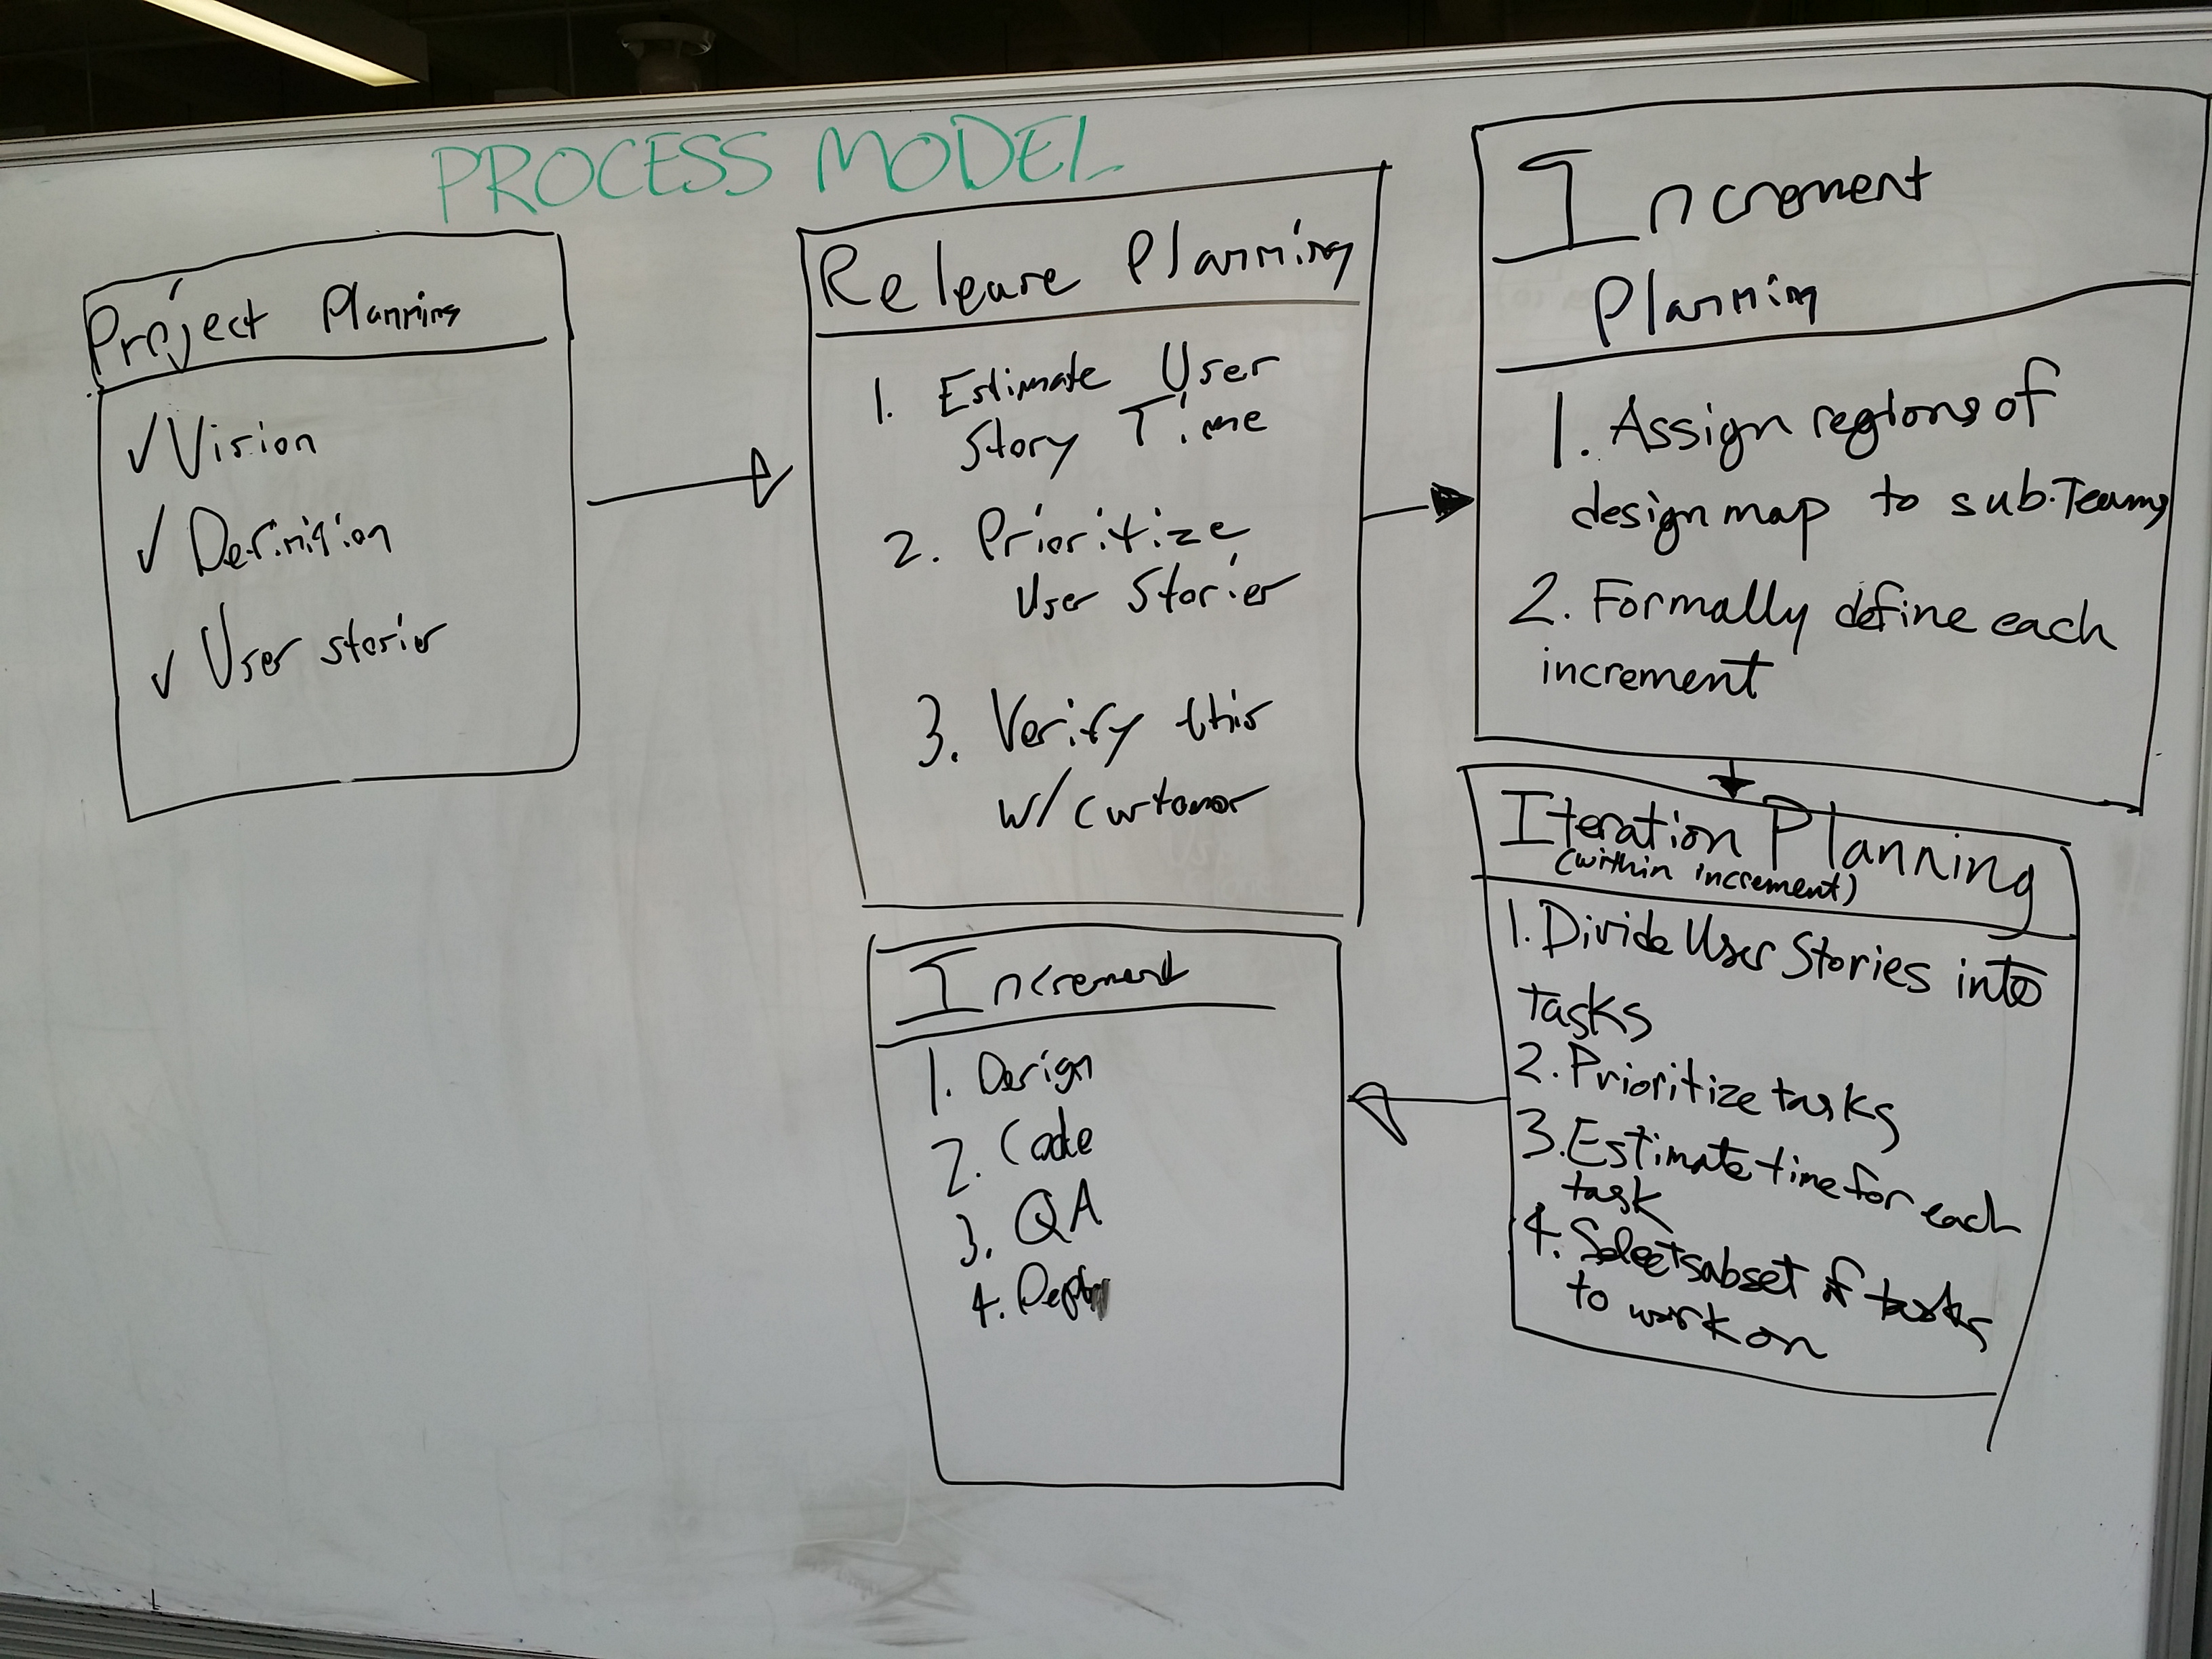 PROCESS MODEL
Project Planning
✓ Vision
✓ Definition
✓ User stories
Release Planning
1. Estimate User
Story Time
2. Prioritize
User Stories
3. Verify this
w/ customer
Increment
Planning
1. Assign regions of
design map to sub-Teams
2. Formally define each
increment
Iteration Planning
(within increment)
1. Divide User Stories into
tasks
2. Prioritize tasks
3. Estimate time for each
task
4. Select subset of tasks
to work on
Increment
1. Design
2. Code
3. QA
4.